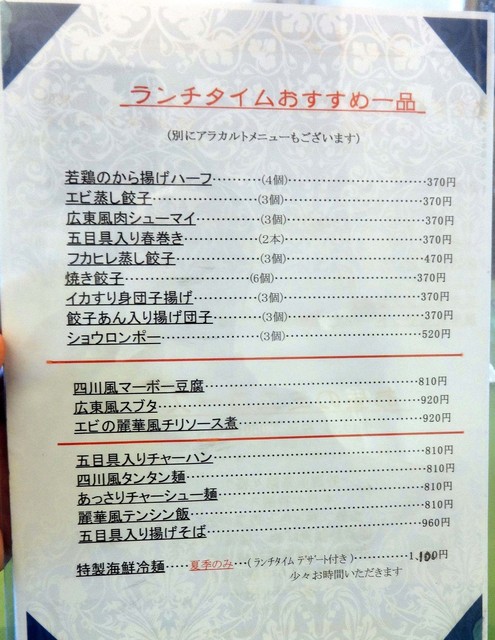 ランチタイムおすすめ一品
(別にアラカルトメニューもございます)
若鶏のから揚げハーフ………(4個)…………………………370円
エビ蒸し餃子………………(3個)…………………………370円
広東風肉シューマイ…………(3個)…………………………370円
五目具入り春巻き……………(2本)…………………………370円
フカヒレ蒸し餃子……………(3個)…………………………470円
焼き餃子……………………(6個)…………………………370円
イカすり身団子揚げ…………(3個)…………………………370円
餃子あん入り揚げ団子………(3個)…………………………370円
ショウロンポー………………(3個)…………………………520円
四川風マーボー豆腐…………………………………………810円
広東風スブタ…………………………………………………920円
エビの麗華風チリソース煮…………………………………920円
五目具入りチャーハン………………………………………810円
四川風タンタン麺……………………………………………810円
あっさりチャーシュー麺……………………………………810円
麗華風テンシン飯……………………………………………810円
五目具入り揚げそば…………………………………………960円
特製海鮮冷麺……夏季のみ…(ランチタイム デザート付き)…………1,100円
少々お時間いただきます